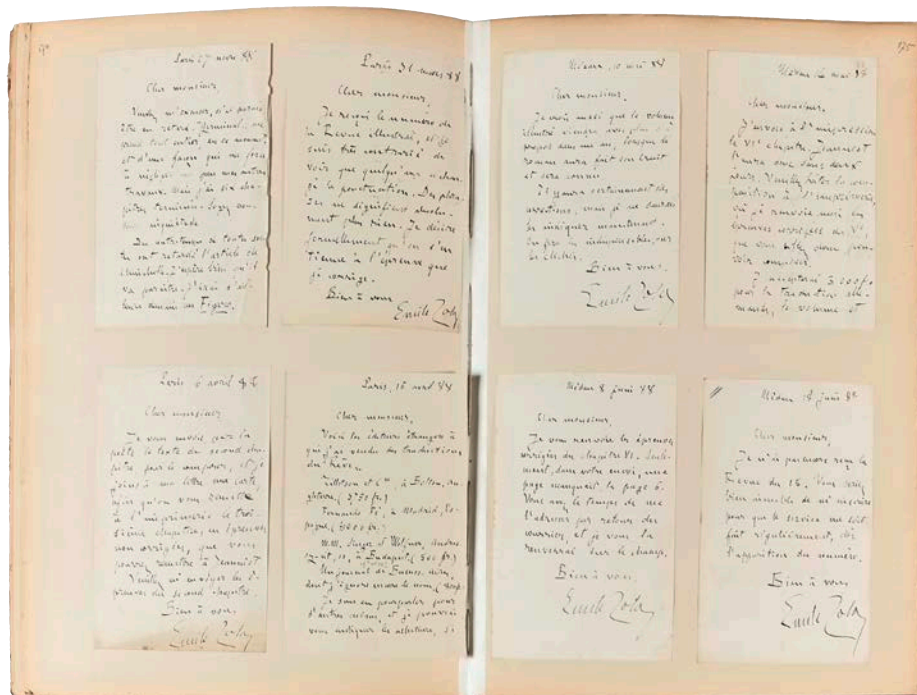 Paris 27 mars 88
Cher monsieur,
Veuillez m'excuser, si
être en retard. Germinal me
prend tout entier en ce moment,
et d'une façon qui me force
à négliger un peu mes autres
travaux. Mais j'ai six cha-
pitres terminés. Soyez
inquiétude.
ont retardé l'article de
J'espère bien qu'il
va paraître.
Figaro.
Paris 31 mars 88
Cher monsieur,
Je reçois le numéro de
la Revue illustrée, et je
suis très contrarié de
voir que quelqu'un a chan-
gé la ponctuation. Des phra-
ses ne signifient absolu-
ment plus rien. Je désire
formellement qu'on s'en
tienne à l'épreuve que
je corrige.
Bien à vous
Emile Zola
Paris 6 avril 88
Cher monsieur,
Je vous envoie par la
poste le texte du second cha-
pitre pour le composer, et je
joins à ma lettre une carte,
afin qu'on vous remette
à l'imprimerie le troi-
sième chapitre, en épreuves
non corrigées, que vous
pourrez remettre à Jeanniot
Veuillez m'envoyer les é-
preuves du second chapitre.
Bien à vous,
Emile Zola
Paris, 16 avril 88
Cher monsieur,
Voici les éditeurs étrangers à
qui j'ai vendu des traductions
du Rêve.
Tillotson et Cie, à Bolton, An-
gleterre (3750 fr.)
Fernando Fé, à Madrid, Es-
pagne (3000 fr.)
M.M. Singer et Wolfner,
10, à Budapest (500 fr.)
Un journal de Buenos-Aires,
dont j'ignore encore le nom
Je suis en pourparlers pour
d'autres encore, et je pourrai
vous indiquer les acheteurs, si
Médan, 10 mai 88
Cher monsieur,
Je crois aussi que le volume
illustré viendra avec plus d'à
propos dans un an, lorsque le
roman aura fait son bruit
et sera connu.
Il y aura certainement des
corrections, mais je ne saurais
les indiquer maintenant.
On fera les indispensables, sur
les clichés.
Bien à vous.
Emile Zola
175
Médan 12 mai 88
Cher monsieur,
J'envoie à l'impression
le VIe chapitre. Jeanniot
l'aura donc dans deux
jours. Veuillez hâter la com-
position à l'imprimerie,
où je renvoie aussi les
épreuves corrigées du Ve,
que vous allez donc pou-
voir
J'accepterai 3000 fr.
pour la traduction alle-
mande, le volume et
Médan 8 juin 88
Cher monsieur,
Je vous renvoie les épreuves
corrigées du chapitre VI. Seule-
ment, dans votre envoi, une
page manquait, la page 6.
Vous avez le temps de me
l'adresser par retour du
courrier, et je vous la
renverrai sur le champ.
Bien à vous,
Emile Zola
Médan 18 juin 88
Cher monsieur,
Je n'ai pas encore reçu la
Revue du 15. Vous seriez
bien aimable de m'inscrire
pour que le service me soit
fait régulièrement, dès
l'apparition du numéro.
Bien à vous,
Emile Zola